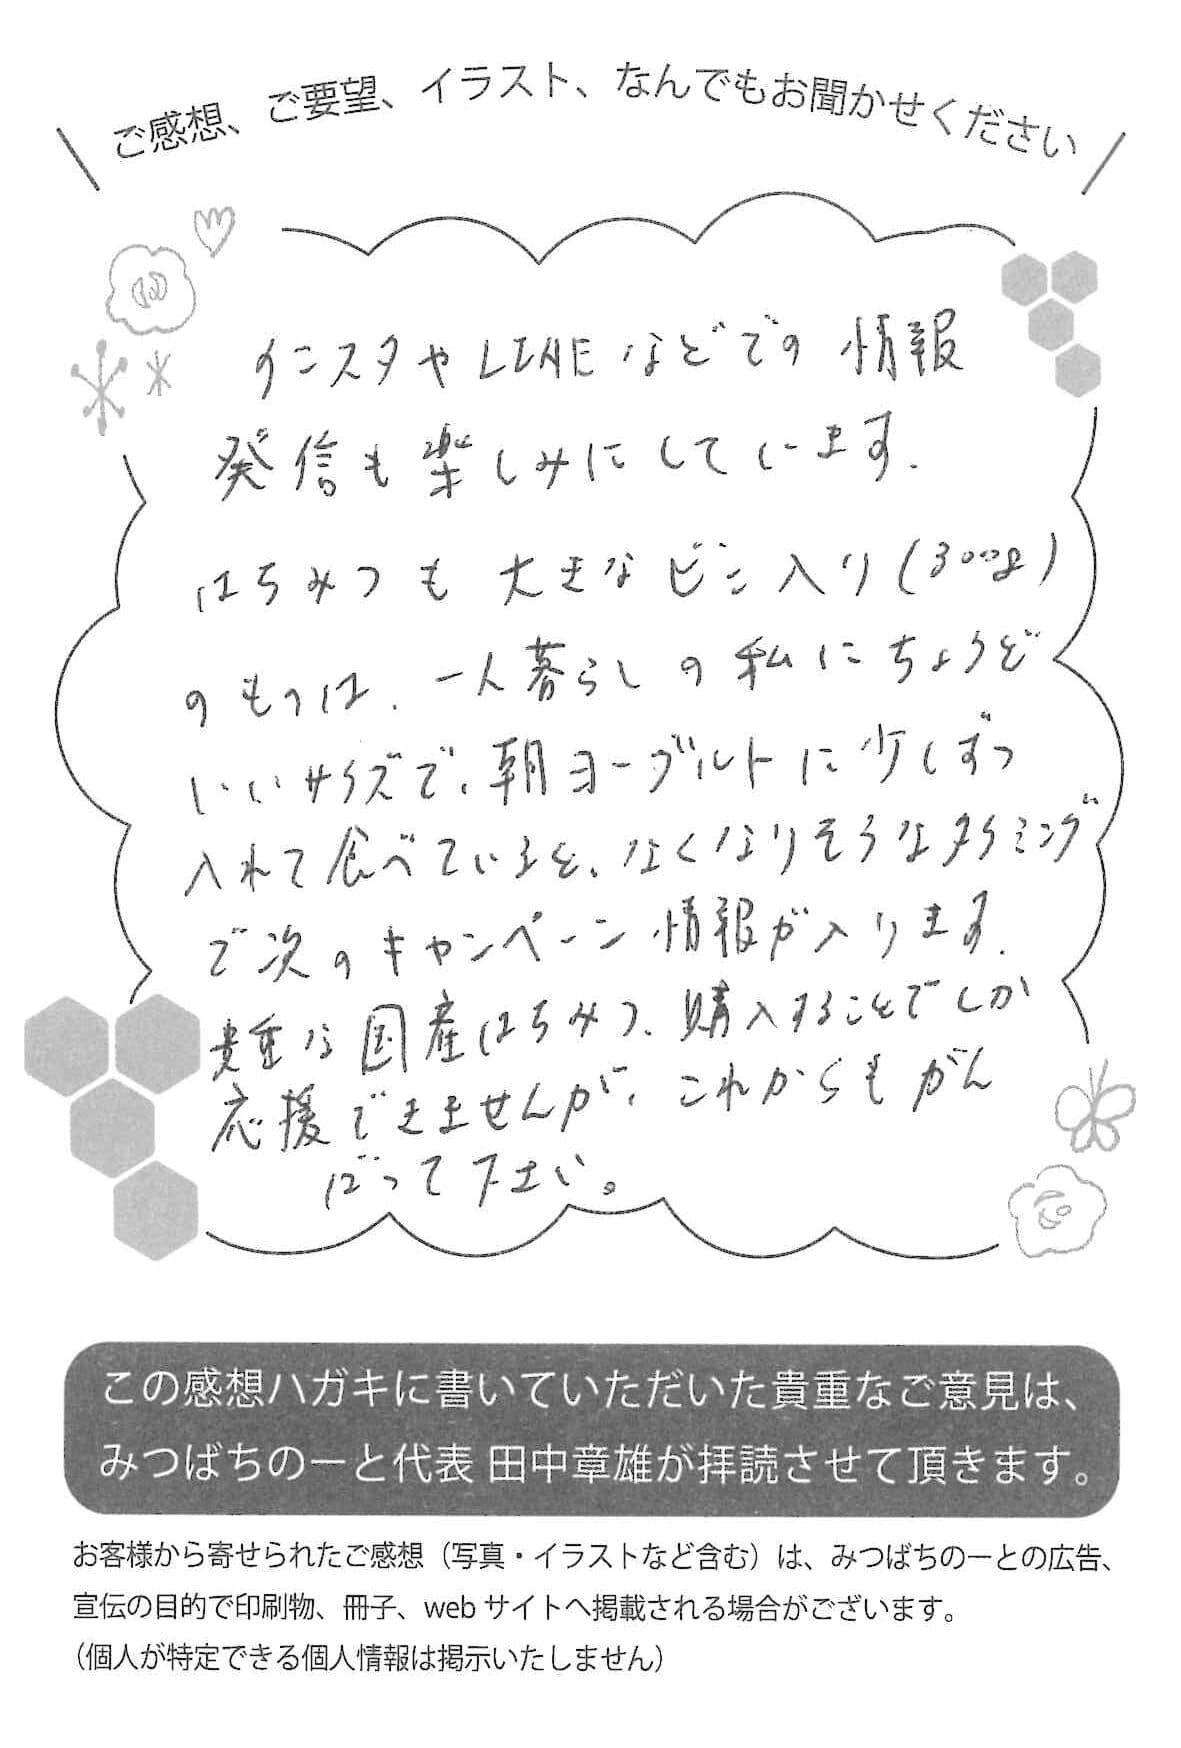 ご感想、ご要望、イラスト、なんでもお聞かせください
インスタやLINEなどでの情報
発信も楽しみにしています.
はちみつも大きなビン入り(300g)
のものは、一人暮らしの私にちょうど
いいサイズで、朝ヨーグルトに少しずつ
入れて食べていると、なくなりそうなタイミング
で次のキャンペーン情報が入ります.
貴重な国産はちみつ、購入することでしか
応援できませんが、これからもがん
ばって下さい。
この感想ハガキに書いていただいた貴重なご意見は、
みつばちのーと代表 田中章雄が拝読させて頂きます。
お客様から寄せられたご感想（写真・イラストなど含む）は、みつばちのーとの広告、
宣伝の目的で印刷物、冊子、webサイトへ掲載される場合がございます。
（個人が特定できる個人情報は掲示いたしません）